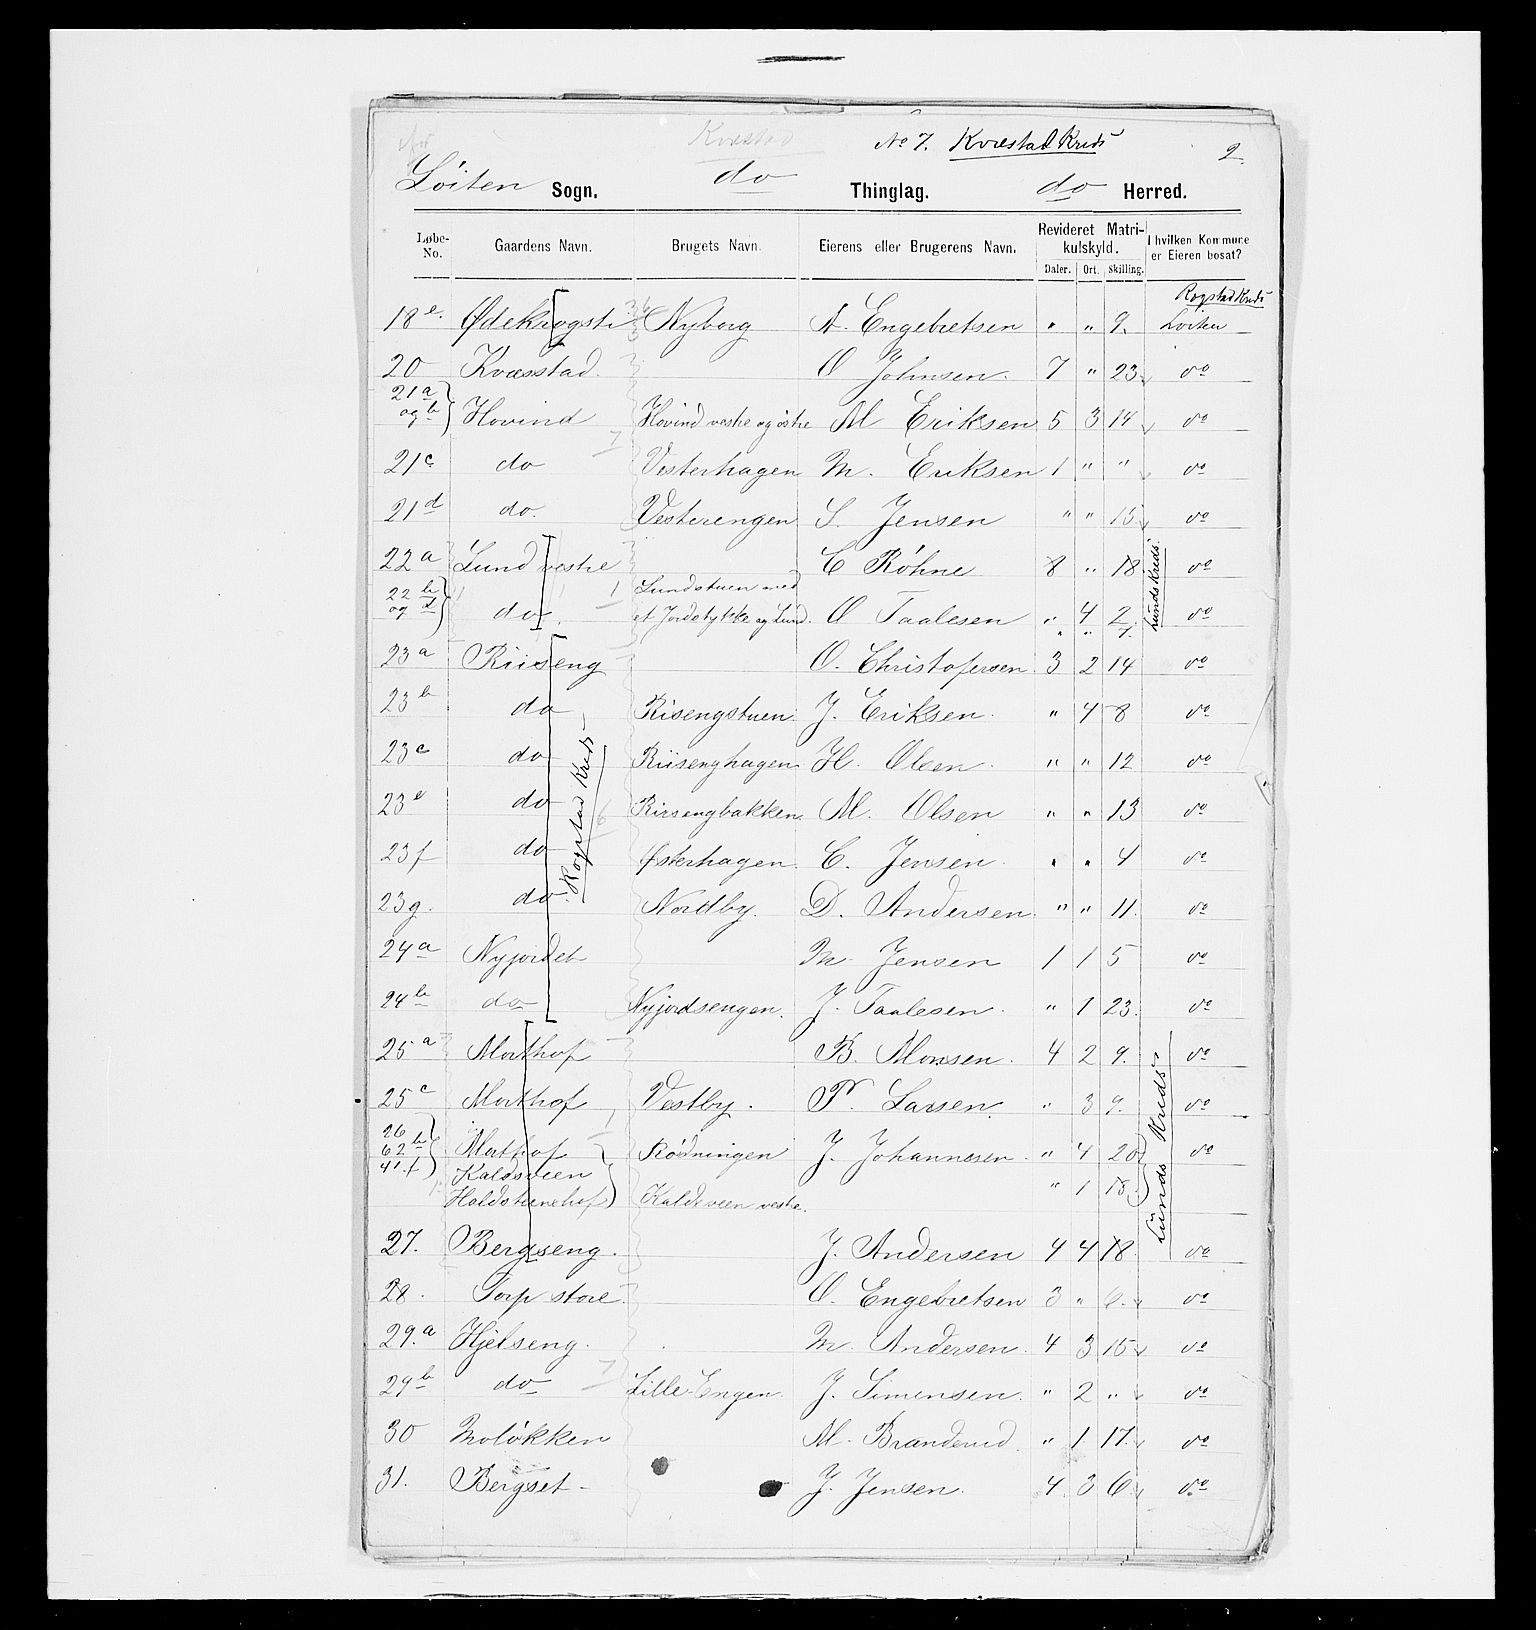 Kvæstad No 7. Kvæstad Kreds 2
Löiten Sogn. do Thinglag. do Herred.
Løbe-No. Gaardens Navn. Brugets Navn. Eierens eller Brugerens Navn. Revideret Matrikulskyld. Daler. Ort. Skilling. I hvilken Kommune er Eieren bosat?
Rogstad Kreds
18 e. Nyborg A. Engebretsen " " 9. Löiten
20 Kvæsstad. O Johnsen. 7 " 23 do
21 a og b Hovind Hovind vestre og östre M Eriksen 5 3 14 do
21 c do Vesterhagen M. Eriksen 1 " " do
21 d do. Vesterengen S. Jensen " " 15 do
22 a Lund vestre C Röhne 8 " 18 do
22 b og d do. Lundstuen med et Jordstykke og Lund. O Taalesen " 4 2. do
Lunds Kreds.
23 a Riiseng O. Christofersen 3 2 14 do
23 b do Risengstuen J. Eriksen. " 4 8 do
23 c do Riisenghagen H. Olsen. " " 12 do
23 e do Riisengbakken. M. Olsen " " 13 do
23 f do Østerhagen. C. Jensen. " " 4 do
23 g. do. Nordby. D. Andersen " " 11. do
Rogstad Kreds
24 a Nyjordet M. Jensen 1 1 5 do
24 b do Nyjordsengen. J. Taalesen. " 1 23. do
25 a Morthof B. Monsen. 4 2 9. do
25 c Morthof Vestby. P. Larsen. " 3 9. do
26 62 b 41 f Morthof Rödningen J. Johannesen. " 4 20 do
Kaldsveen
Kaldsveen vestre. " 1 18.
27. Bergseng. J. Andersen 4 4 18. do
Lunds Kreds
28. Torp store. O. Engebretsen 3 " 6. do
29. a Hjelseng. M. Andersen. 4 3 15 do
29 b do Lille-Engen J. Simensen. " 2 " do
30 Moløkken M. Branderud. " 1. 17. do
31. Bergset - J. Jensen. 4 3 6. do